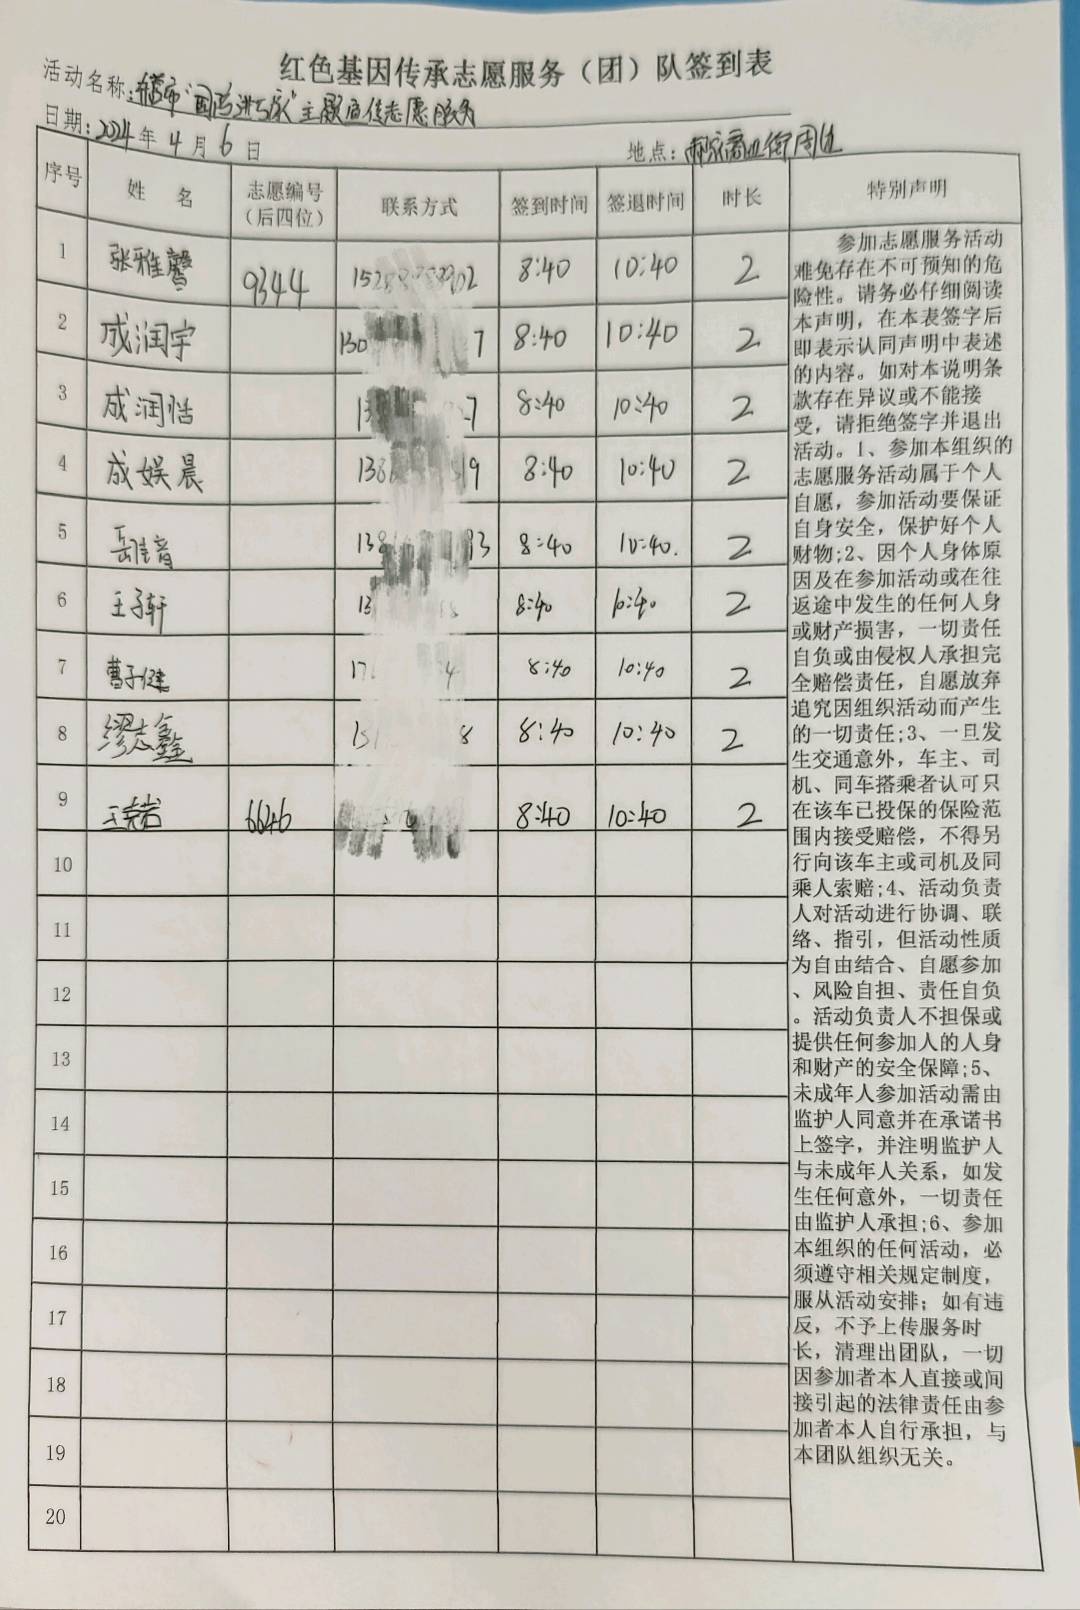 红色基因传承志愿服务（团）队签到表
活动名称: 主题宣传志愿服务
日期: 2024年4月6日 地点: 商业街周边
序号 姓 名 志愿编号（后四位） 联系方式 签到时间 签退时间 时长 特别声明
1 张雅馨 9344 8:40 10:40 2
2 成润宇 130 7 8:40 10:40 2
3 成润恬 13 7 8:40 10:40 2
4 成娱晨 138 19 8:40 10:40 2
5 岳佳音 138 93 8:40 10:40. 2
6 王子轩 13 8:40 10:40 2
7 曹子健 17 4 8:40 10:40 2
8 缪志鑫 151 8 8:40 10:40 2
9 6646 8:40 10:40 2
10
11
12
13
14
15
16
17
18
19
20
参加志愿服务活动
难免存在不可预知的危
险性。请务必仔细阅读
本声明，在本表签字后
即表示认同声明中表述
的内容。如对本说明条
款存在异议或不能接
受，请拒绝签字并退出
活动。1、参加本组织的
志愿服务活动属于个人
自愿，参加活动要保证
自身安全，保护好个人
财物;2、因个人身体原
因及在参加活动或在往
返途中发生的任何人身
或财产损害，一切责任
自负或由侵权人承担完
全赔偿责任，自愿放弃
追究因组织活动而产生
的一切责任;3、一旦发
生交通意外，车主、司
机、同车搭乘者认可只
在该车已投保的保险范
围内接受赔偿，不得另
行向该车主或司机及同
乘人索赔;4、活动负责
人对活动进行协调、联
络、指引，但活动性质
为自由结合、自愿参加
、风险自担、责任自负
。活动负责人不担保或
提供任何参加人的人身
和财产的安全保障;5、
未成年人参加活动需由
监护人同意并在承诺书
上签字，并注明监护人
与未成年人关系，如发
生任何意外，一切责任
由监护人承担;6、参加
本组织的任何活动，必
须遵守相关规定制度，
服从活动安排；如有违
反，不予上传服务时
长，清理出团队，一切
因参加者本人直接或间
接引起的法律责任由参
加者本人自行承担，与
本团队组织无关。